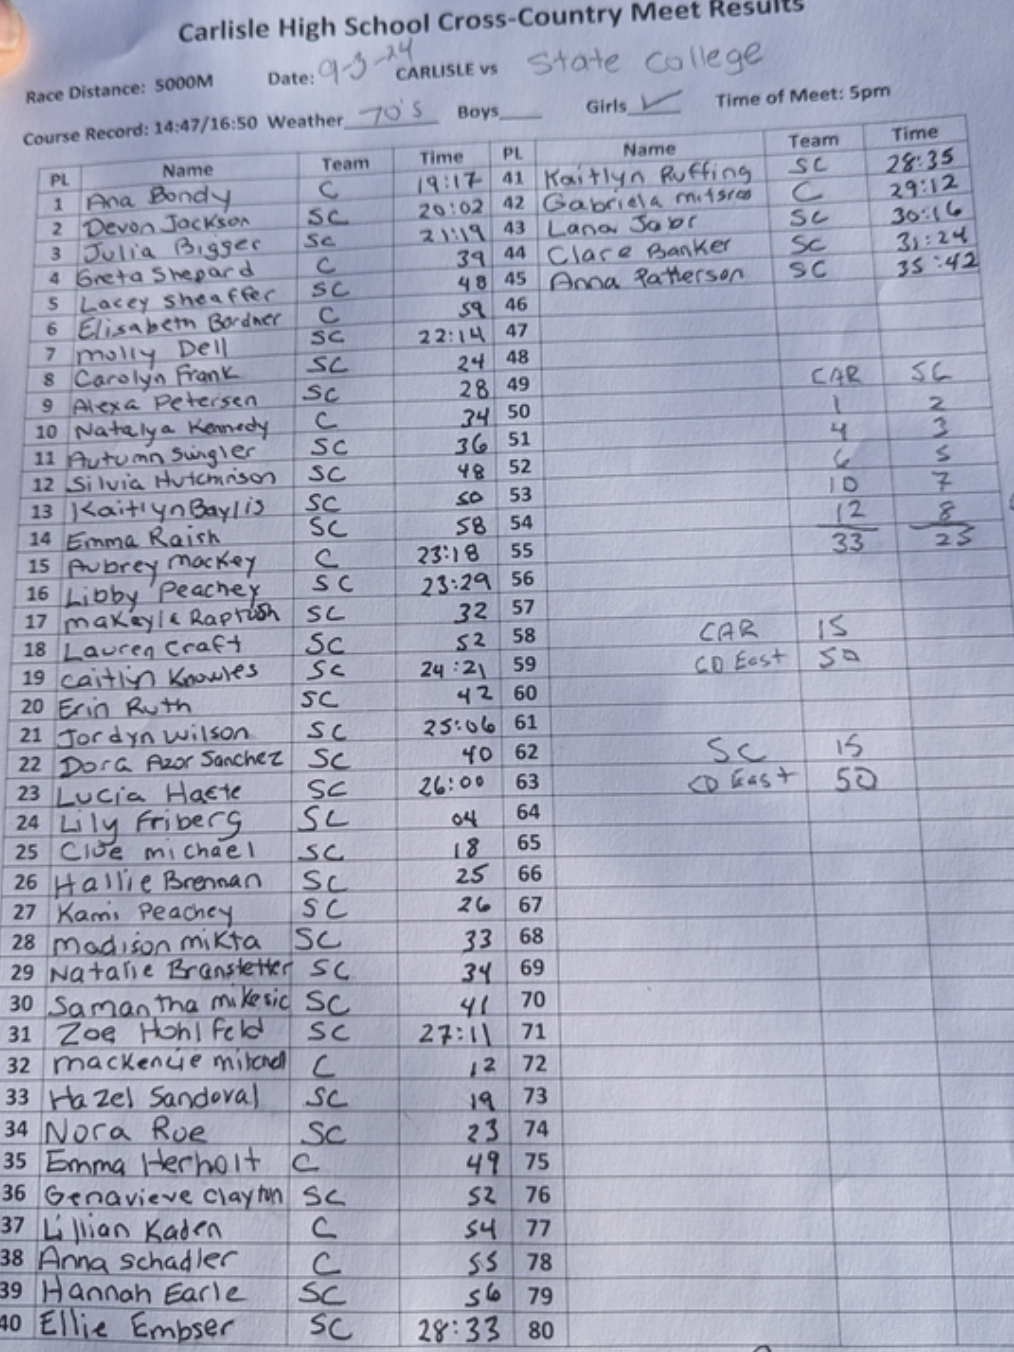 Carlisle High School Cross-Country Meet Results
Race Distance: 5000M Date: 9-3-24 CARLISLE vs State College
Course Record: 14:47/16:50 Weather 70's Boys Girls ✓ Time of Meet: 5pm
PL Name Team Time PL Name Team Time
1 Ana Bondy C 19:17 41 Kaitlyn Ruffing SC 28:35
2 Devon Jackson SC 20:02 42 Gabriela mitsros C 29:12
3 Julia Bigger SC 21:19 43 Lana Jabr SC 30:16
4 Greta Shepard C 39 44 Clare Banker SC 31:24
5 Lacey Sheaffer SC 48 45 Anna Patterson SC 35:42
6 Elisabeth Bordner C 59 46
7 molly Dell SC 22:14 47
8 Carolyn Frank SC 24 48 CAR SC
9 Alexa Petersen SC 28 49 1 2
10 Natalya Kennedy C 34 50 4 3
11 Autumn Swigler SC 36 51 6 5
12 Silvia Hutchinson SC 48 52 10 7
13 Kaitlyn Baylis SC 50 53 12 8
14 Emma Raish SC 58 54 33 25
15 Aubrey Mackey C 23:18 55
16 Libby Peachey SC 23:29 56
17 makayla SC 32 57
18 Lauren Craft SC 52 58 CAR 15
19 Caitlyn Knowles SC 24:21 59 CD East 50
20 Erin Ruth SC 42 60
21 Jordyn Wilson SC 25:06 61
22 Dora Azor Sanchez SC 40 62 SC 15
23 Lucia Haete SC 26:00 63 CD East 50
24 Lily Friberg SC 04 64
25 michael SC 18 65
26 Hallie Brennan SC 25 66
27 Kami Peachey SC 26 67
28 Madison mikta SC 33 68
29 Natalie Branstetter SC 34 69
30 Samantha mikesic SC 41 70
31 Zoe Hohlfeld SC 27:11 71
32 mackenzie mitchell C 12 72
33 Hazel Sandoval SC 19 73
34 Nora Roe SC 23 74
35 Emma Herholt C 49 75
36 Genavieve Clayton SC 52 76
37 Lillian Kaden C 54 77
38 Anna Schadler C 55 78
39 Hannah Earle SC 56 79
40 Ellie Embser SC 28:33 80